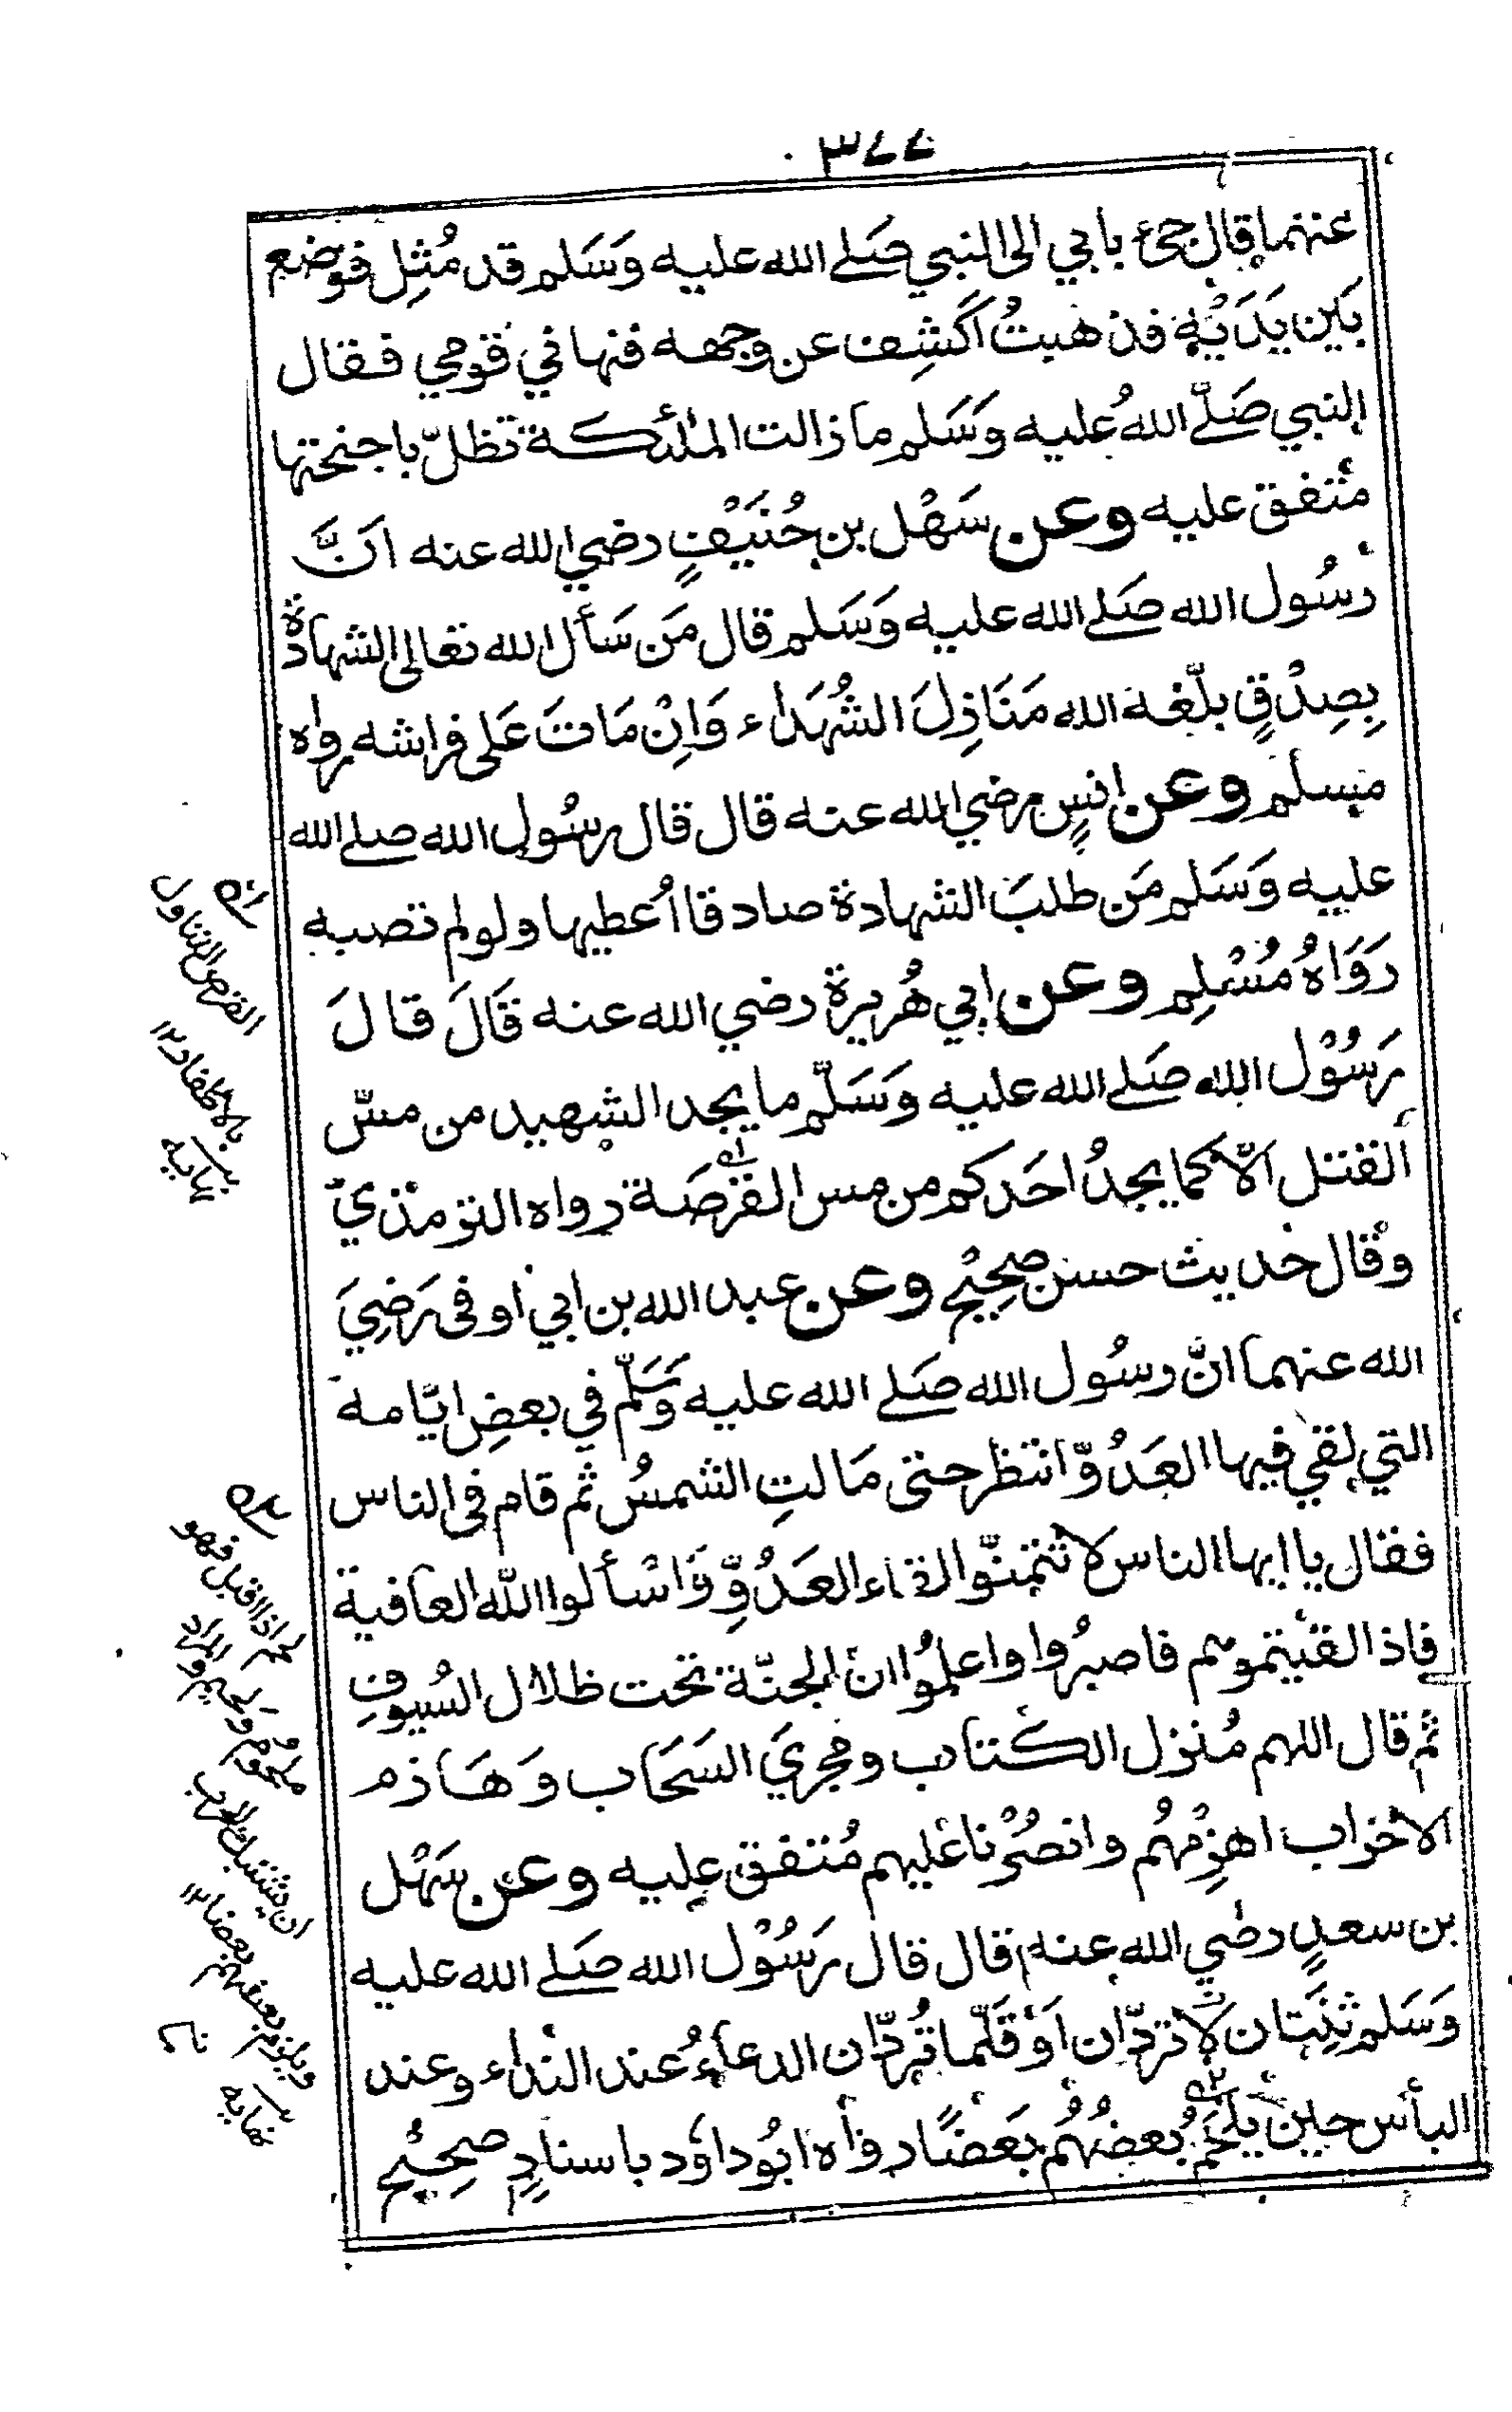 ٣٧٧
عنهما قال جئ بابي الى النبي صَلے الله عليه وَسَلم قد مُثِل فوضع
بَين يَدَيْهِ فذهبتُ اَكشِف عن وجهه فنهاني قومي فقال
النبي صَلّے اللهُ عليه وَسَلم ما زالت الملئكة تظلّ باجنحتها
متفق عليه وعن سَهْل بن حُنَيْفٍ رضي الله عنه انَّ
رسُول الله صَلے الله عليه وَسَلم قال مَن سَأل الله تعالى الشهادة
بِصِدْقٍ بلّغه الله مَنَازِلَ الشُهَدٰاء وَاِنْ مَاتَ عَلى فراشه رواه
مسلم وعن انسٍ رضي الله عنه قال قال رسُول الله صلے الله
عليه وَسَلم مَن طلبَ الشهادة صادقا اُعطيها ولو لم تصبه
رَوَاهُ مُسْلِم وعن ابي هُريرة رضي الله عنه قَالَ قالَ
رَسُوْل الله صَلے الله عليه وَسَلّم ما يجد الشهيد من مسّ
القتل الّا كما يجدُ احَدكم من مس القرْصَة رواه الترمذي
وقال حديث حسن صحِيْح وعن عبد الله بن ابي اوفى رَضِيَ
الله عنهما انَّ رسُول الله صَلے الله عليه وَسَلّم في بعضِ ايّامه
التي لقي فيها العَدُوّ انتظر حتى مَالتِ الشمسُ ثم قام فى الناس
فقال يا ايها الناس لا تتمنّوا لقاء العَدُوِّ وَاسْألوا اللّٰه العافية
فاذا لقيتموهم فاصبرُوا واعلمُوا ان الجنّة تحت ظلال السُيوفِ
ثم قال اللهم مُنزل الكتاب ومُجريَ السَحَاب وَهَازم
الاحزاب اهزِمْهُم وانصُرْنا عليهم مُتفق عليه وعن سَهْل
بن سعدٍ رضي الله عنه قال قال رَسُوْل الله صَلے الله عليه
وَسَلم ثِنْتان لا تردّان اَوْ قَلّما تُردّان الدعاءُ عند النداء وعند
البأس حين يلحَمُ بعضُهُم بَعضًا رواه ابُو داوٗد باسنادٍ صحِيْح
القرص التناول
باطراف
نهايه
ان يشتبك الحرب
ويلزم بعضهم بعضا ١٢
نهايه